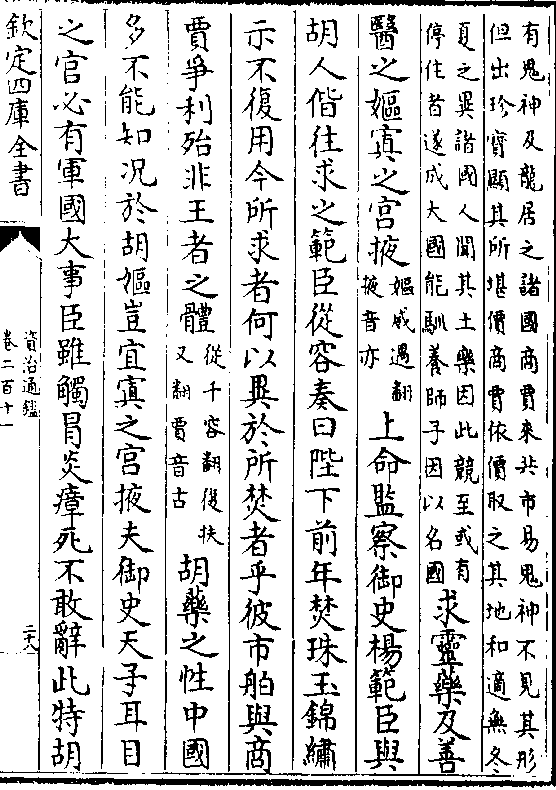 有鬼神及龍居之諸國商賈來共市易鬼神不見其形
但出珍寶顯其所堪價商賈依價取之其地和適無冬
夏之異諸國人聞其土樂因此競至或有
停住者遂成大國能馴養師子因以名國
求靈藥及善
醫之嫗寘之宮掖
嫗威遇翻
掖音亦
上命監察御史楊範臣與
胡人偕往求之範臣從容奏曰陛下前年焚珠玉錦繡
示不復用今所求者何以異於所焚者乎彼市舶與商
賈爭利殆非王者之體
從千容翻復扶
又翻賈音古
胡藥之性中國
多不能知况於胡嫗豈宜寘之宮掖夫御史天子耳目
之官必有軍國大事臣雖觸冒炎瘴死不敢辭此特胡
欽定四庫全書
資治通鑑
卷二百十一
二十八